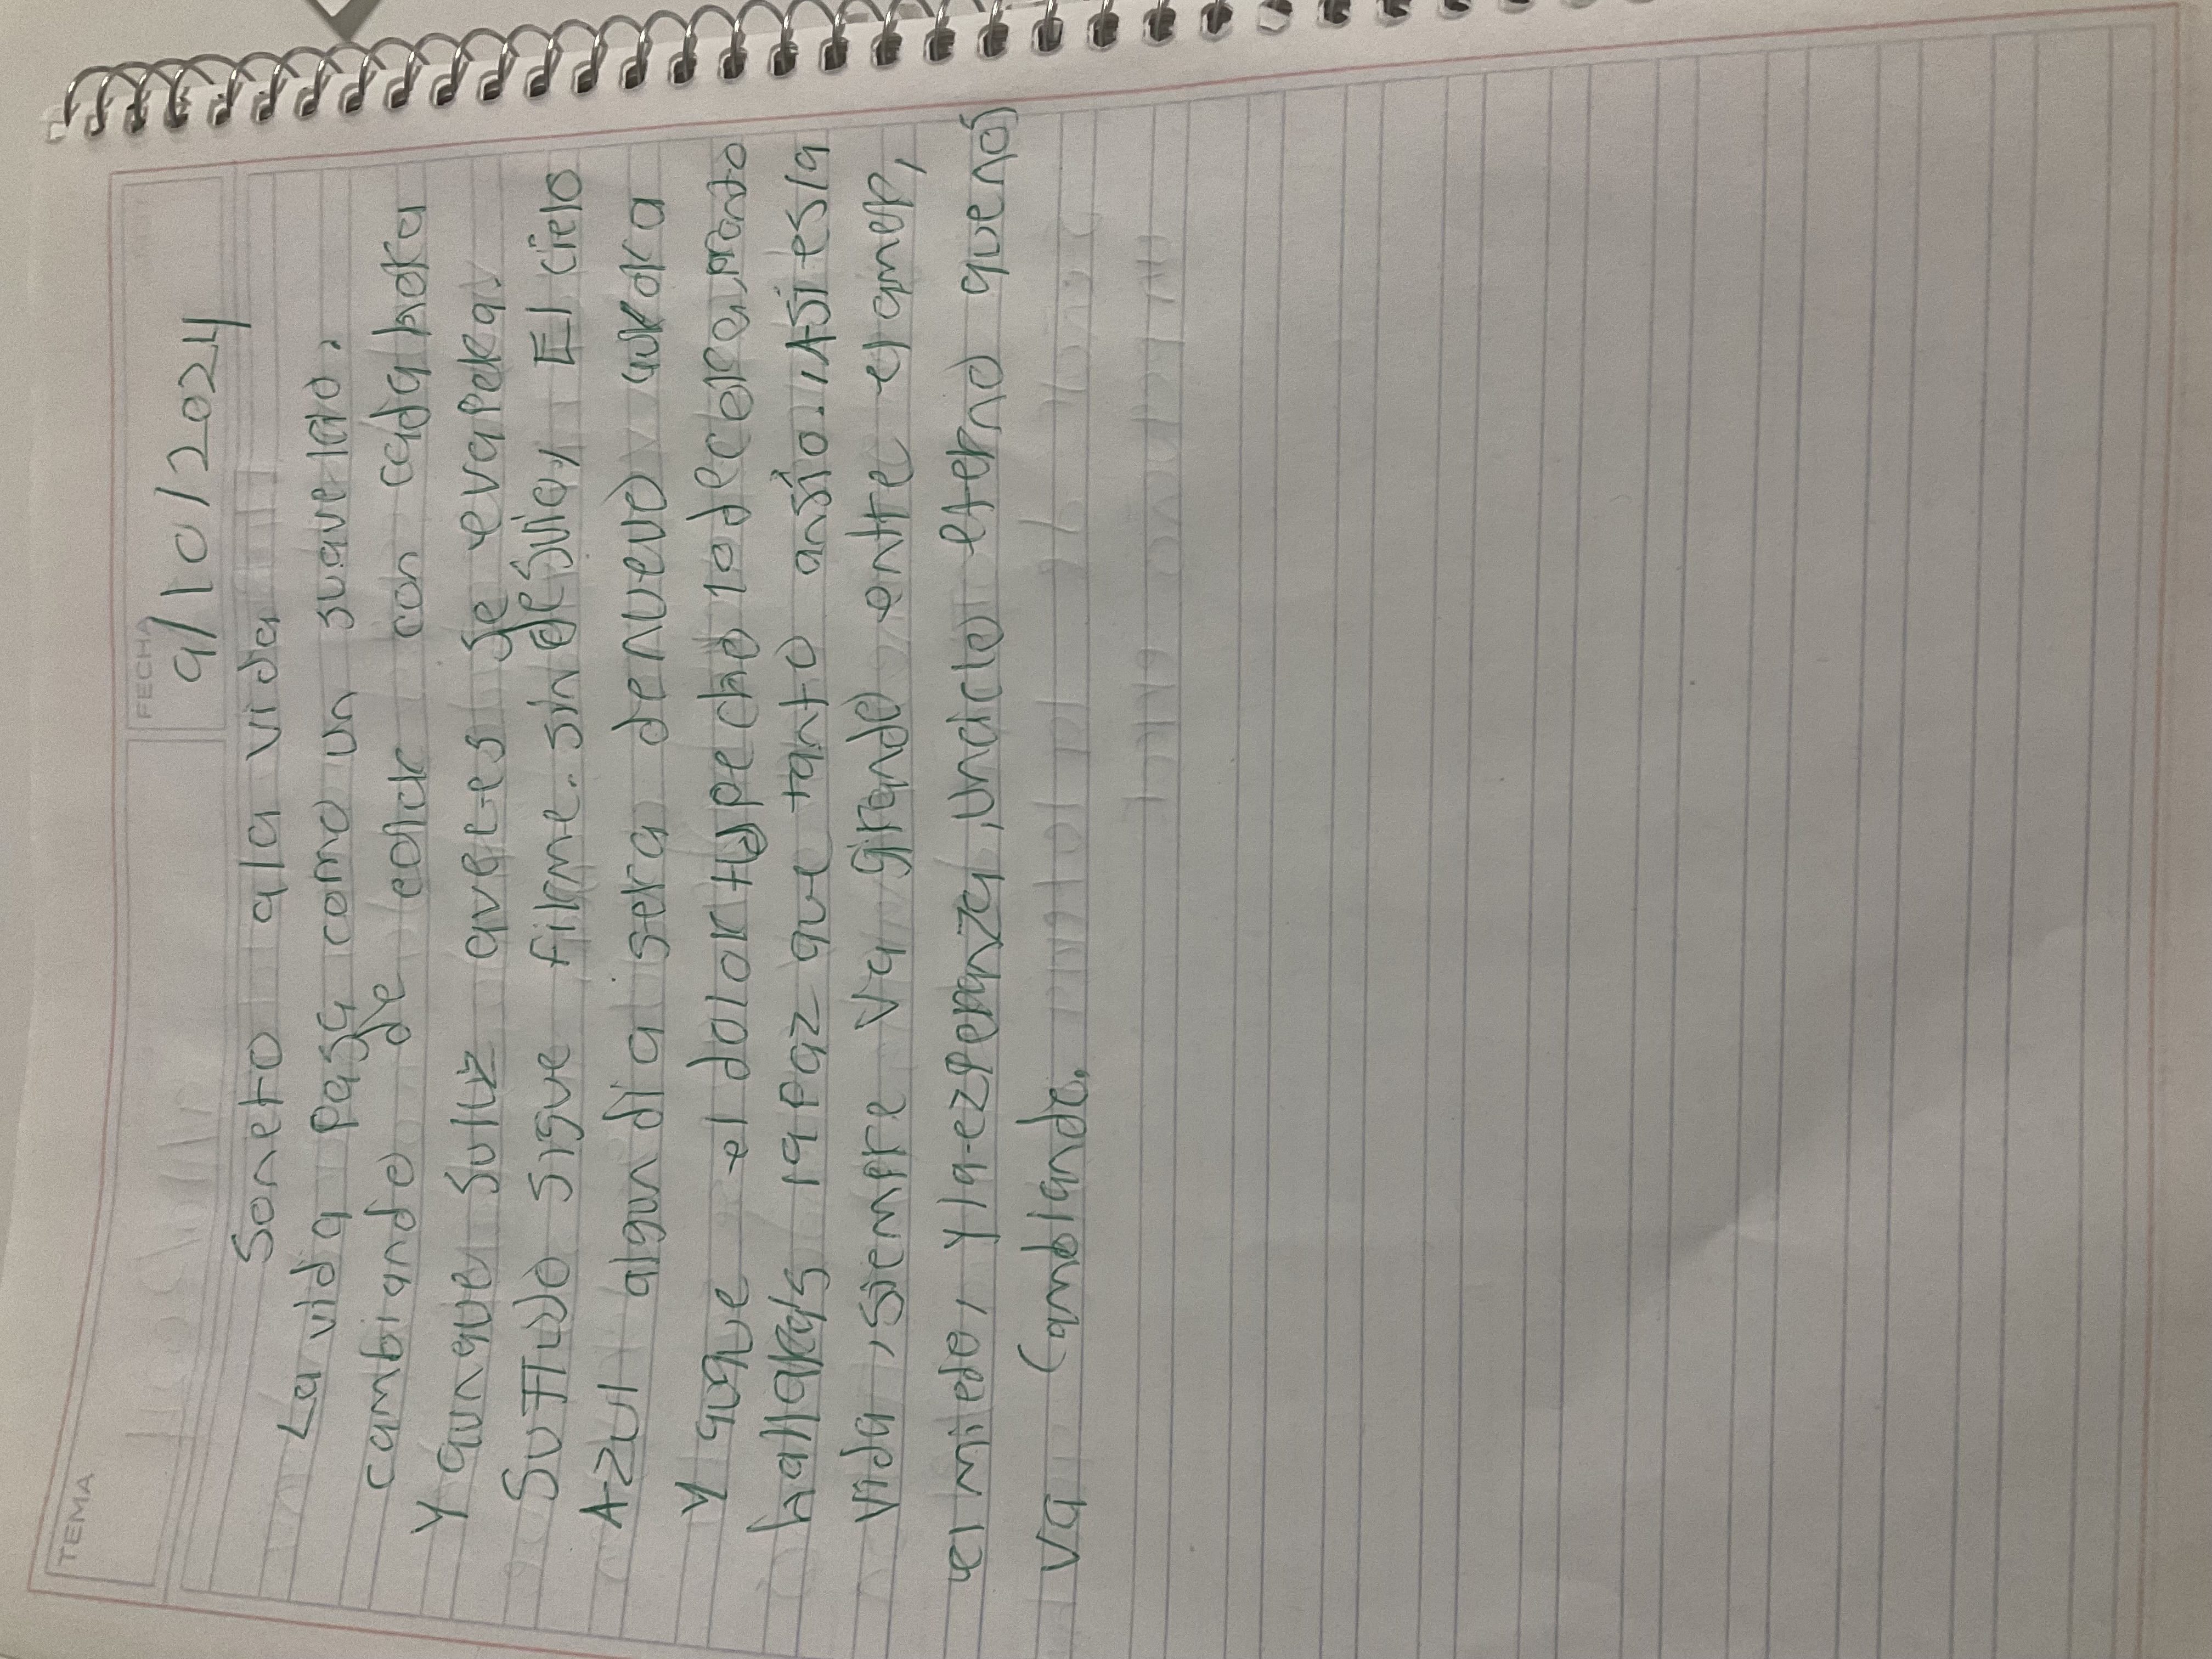 TEMA
FECHA
9/10/2024
Soneto ala vida
La vida pasa como un suave
cambiando de color con cada hora
Y aunque suluz aveces se evapera.
Suflujo sigue firme. sin desvio, El cielo
Azul algun dia sera denuevo aurora
Y auque el dolor tupecho lodecora, pronto
hallaras lapaz que tanto ansío., Asi esla
vida, siempre va girando entre el amor,
el miedo, yla-ezperanza, unciclo eterno quenos
va cambiando.